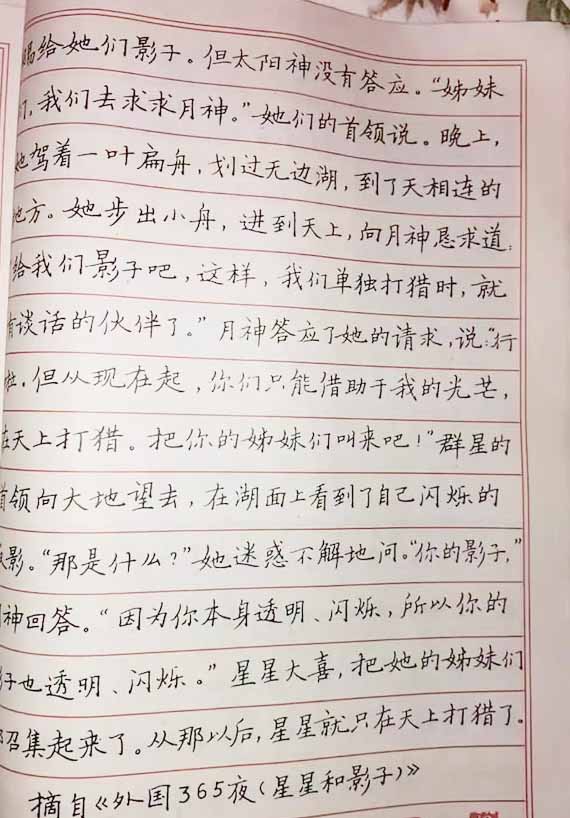 赐给她们影子。但太阳神没有答应。“姊妹
们，我们去求求月神。”她们的首领说。晚上，
她驾着一叶扁舟，划过无边湖，到了天相连的
地方。她步出小舟，进到天上，向月神恳求道：
给我们影子吧，这样，我们单独打猎时，就
有谈话的伙伴了。”月神答应了她的请求，说：“行
啦。但从现在起，你们只能借助于我的光芒，
在天上打猎。把你的姊妹们叫来吧！”群星的
首领向大地望去，在湖面上看到了自己闪烁的
影。“那是什么？”她迷惑不解地问。“你的影子，”
月神回答。“因为你本身透明、闪烁，所以你的
影子也透明、闪烁。”星星大喜，把她的姊妹们
都召集起来了。从那以后，星星就只在天上打猎了。
摘自《外国365夜（星星和影子）》